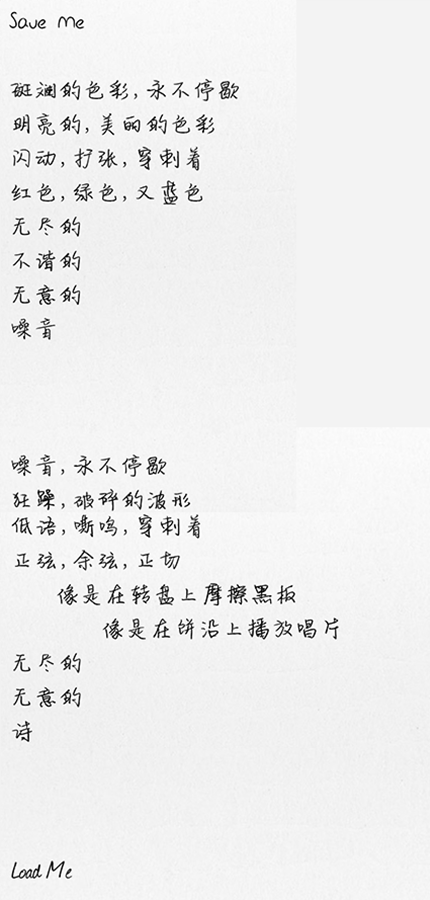 Save Me
斑斓的色彩,永不停歇
明亮的,美丽的色彩
闪动,扩张,穿刺着
红色,绿色,又蓝色
无尽的
不谐的
无意的
噪音
噪音,永不停歇
狂躁,破碎的波形
低语,嘶鸣,穿刺着
正弦,余弦,正切
像是在转盘上摩擦黑板
像是在饼沿上播放唱片
无尽的
无意的
诗
Load Me